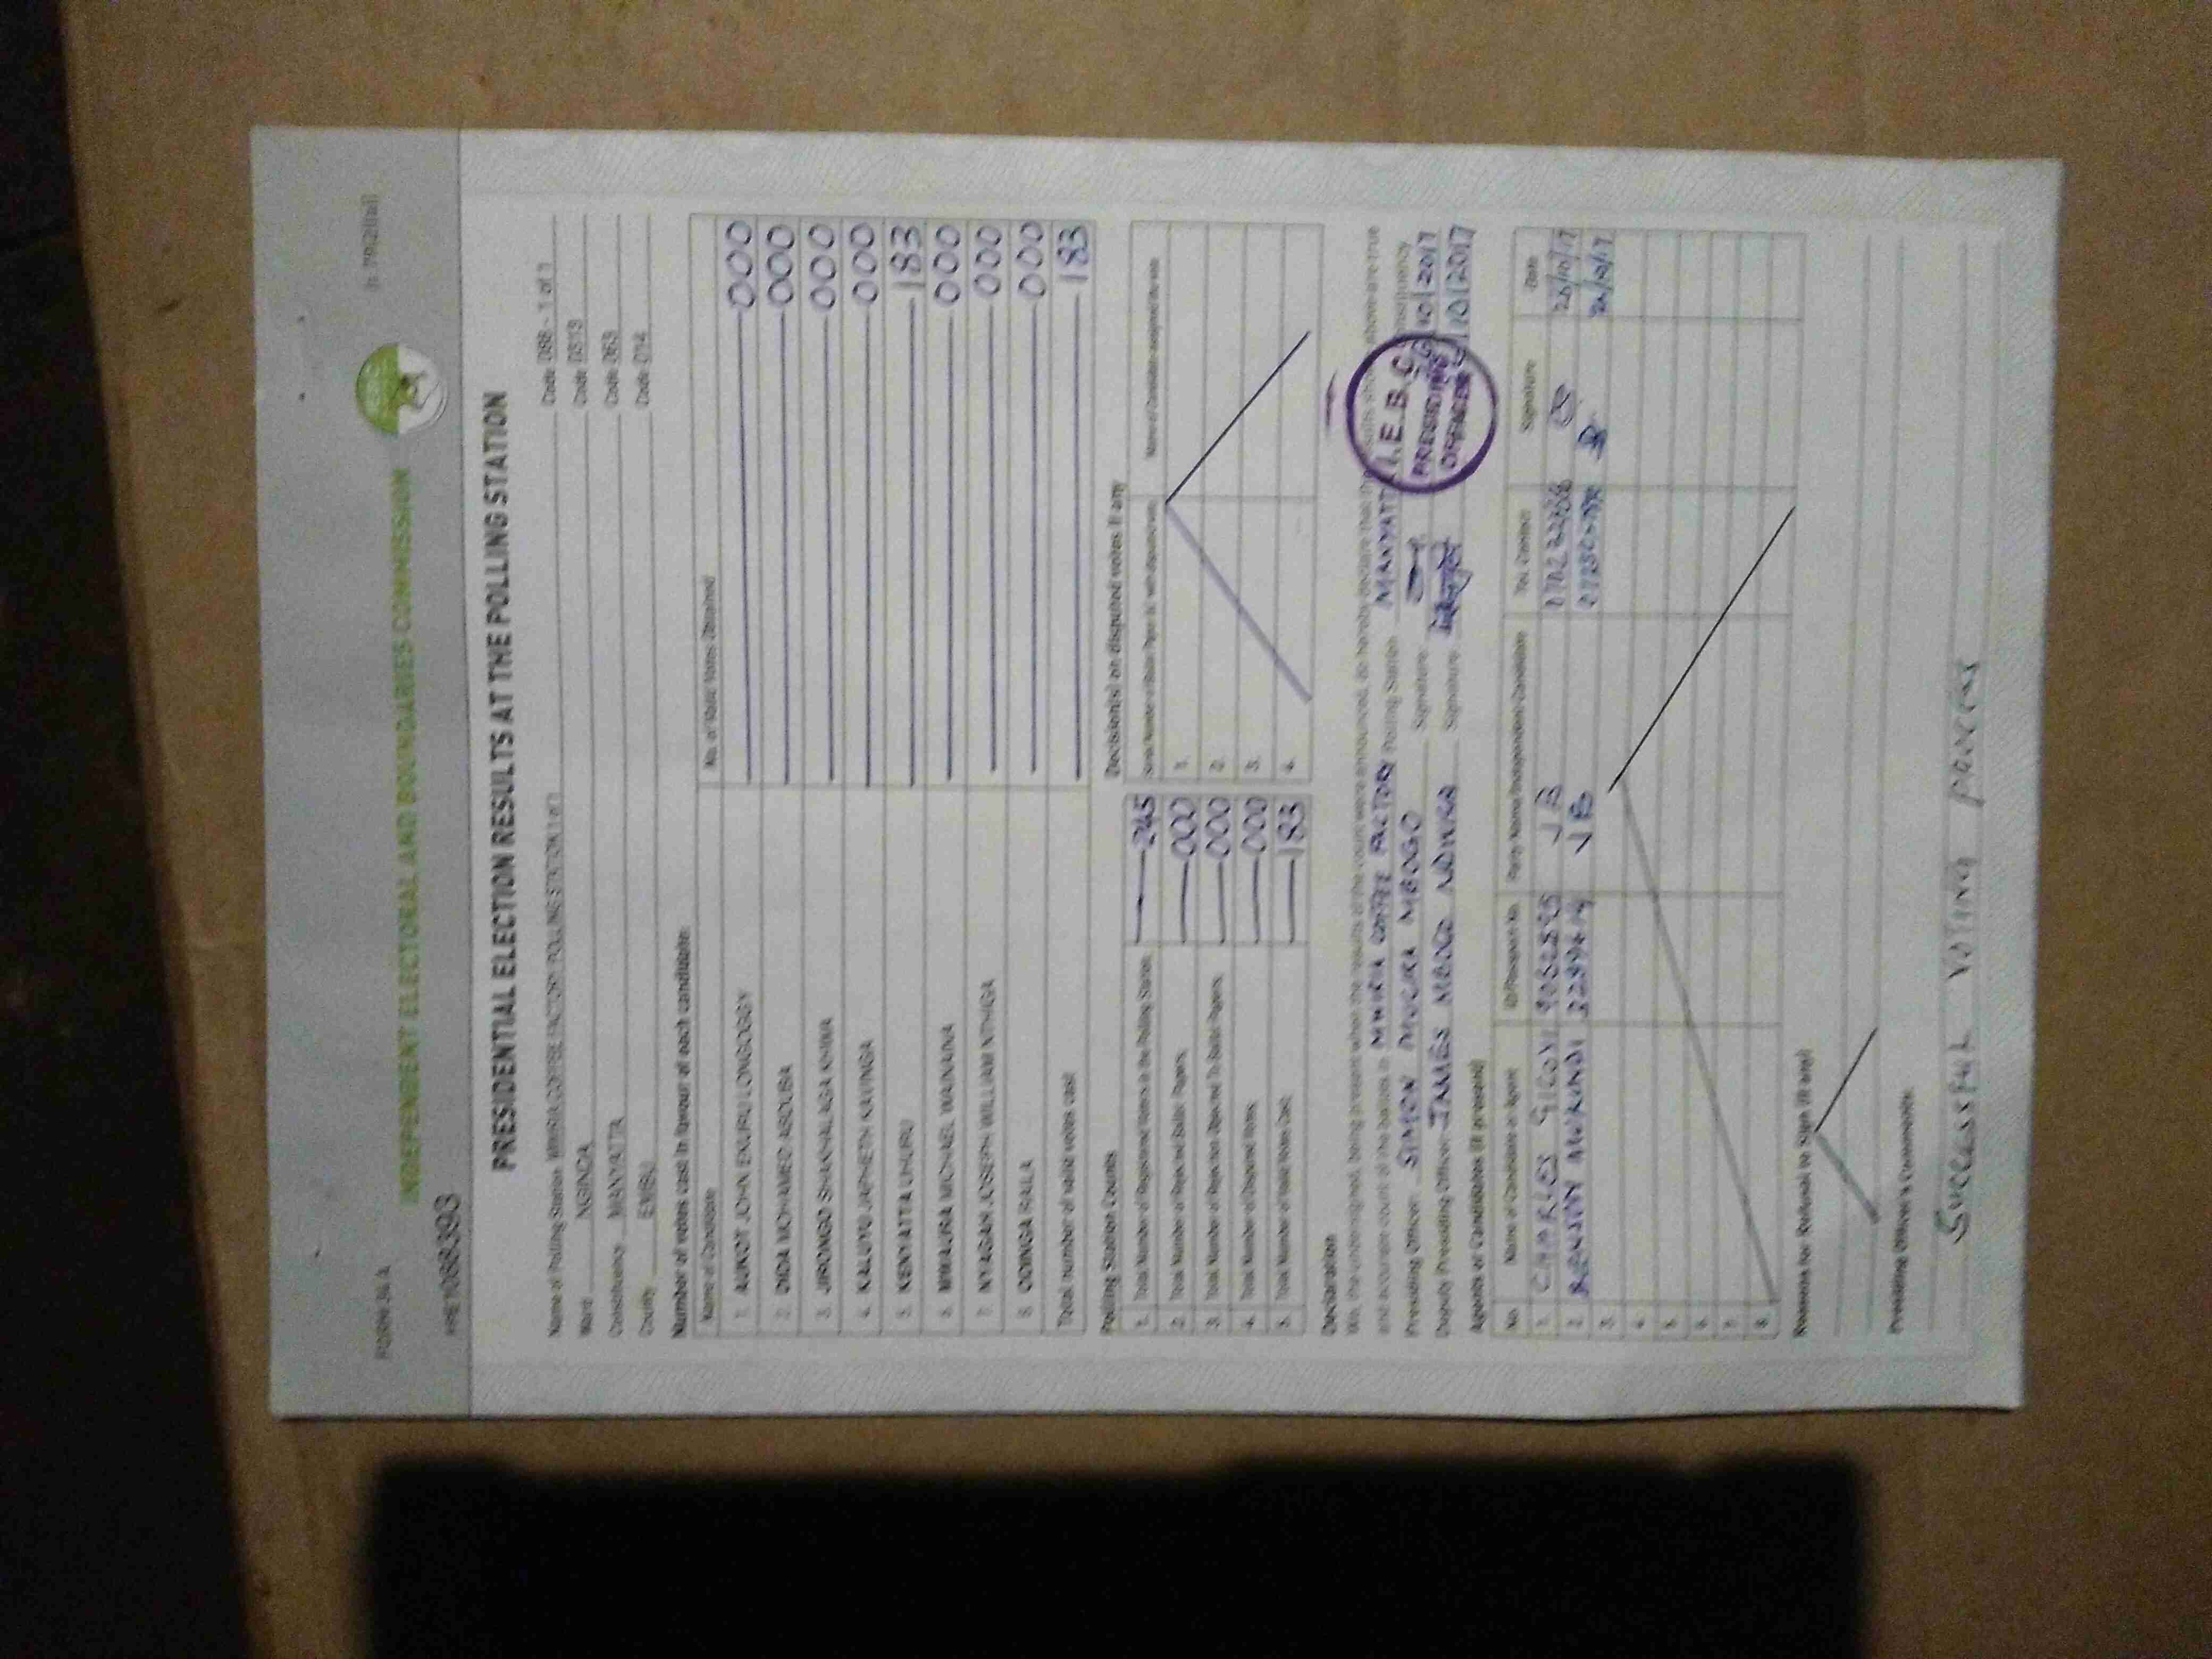 FORM 34 A
INDEPENDENT ELECTORAL AND BOUNDARIES COMMISSION
PRESIDENTIAL ELECTION RESULTS AT THE POLLING STATION
Name of Polling Station MWIRIA COFFEE FACTORY POLLING STATION 1 of 1 Code 086 - 1 of 1
Ward NGINDA Code 0313
Constituency MANYATTA Code 063
County EMBU Code 014
Number of votes cast in favour of each candidate:
Name of Candidate No. of Valid Votes Obtained
1. AUKOT JOHN EKURU LONGOGGY 000
2. DIDA MOHAMED ABDUBA 000
3. JIRONGO SHAKHALAGA KHWA 000
4. KALUYU JAPHETH KAVINGA 000
5. KENYATTA UHURU 183
6. MWAURA MICHAEL WAINAINA 000
7. NYAGAH JOSEPH WILLIAM NTHIGA 000
8. ODINGA RAILA 000
Total number of valid votes cast 183
Polling Station Counts
1. Total Number of Registered Voters in the Polling Station 245
2. Total Number of Rejected Ballot Papers 000
3. Total Number of Rejection Objected To Ballot Papers 000
4. Total Number of Disputed Votes 000
5. Total Number of Valid Votes Cast 183
Decision(s) on disputed votes if any
1.
2.
3.
4.
Declaration
We, the undersigned, being present when the results of the count were announced, do hereby declare that the results shown above are true
and accurate count of the ballots in MWIRIA COFFEE FACTORY Polling Station MANYATTA Constituency
Presiding Officer: SIMON MUGERA MBOGO Signature 10/2017
Deputy Presiding Officer: JAMES MBOGO NDWIGA Signature 10/2017
I.E.B.C
PRESIDING
OFFICER
Agents or Candidates (if present)
No. Name of Candidate or Agent ID/Passport No. Party Name/Independent Candidate Tel. Contact Signature Date
1. CHARLES GICOVI JB 26/10/17
2. JB 26/10/17
3.
4.
5.
6.
7.
8.
Reasons for Refusal to Sign (if any)
Presiding Officer's Comments:
Successful voting process